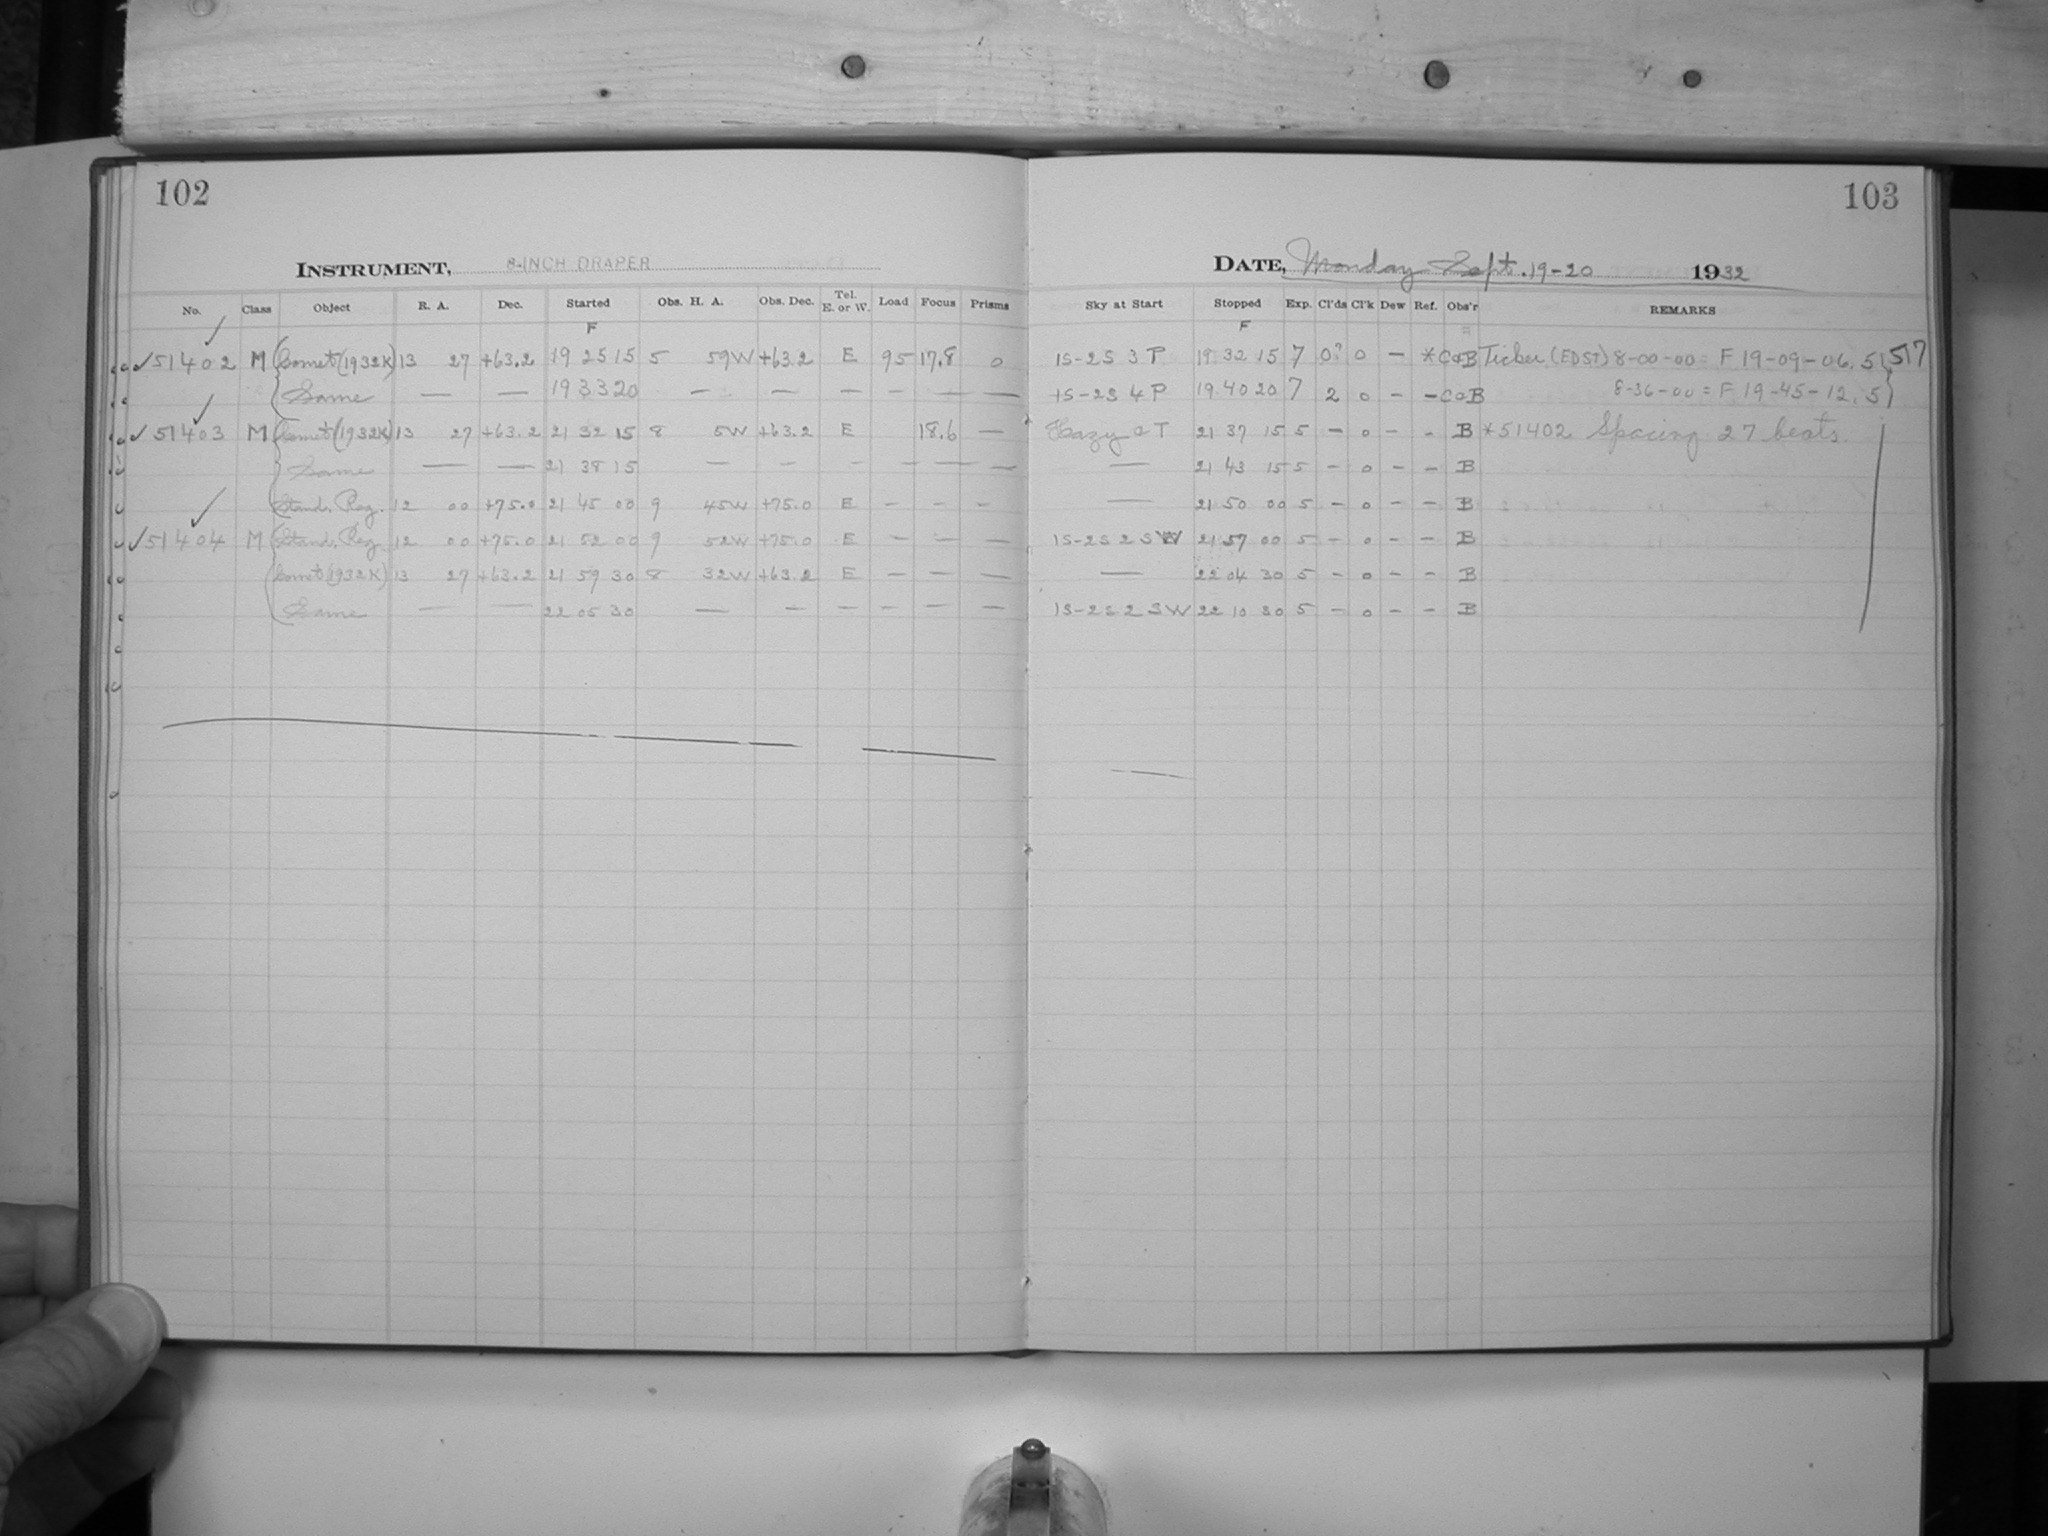 102
INSTRUMENT, 8-INCH DRAPER
No. Class Object R. A. Dec. Started Obs. H. A. Obs. Dec. Tel. E. or W. Load Focus Prisms
F
✓51402 M Comet (1932K) 13 27 +63.2 19 25 15 5 59W +63.2 E 95 17.8 0
Same — — 19 33 20 — — — — — — —
✓51403 M Comet (1932K) 13 27 +63.2 21 32 15 8 5W +63.2 E 18.6 —
Same — — 21 38 15 — — — — — —
Stand. Reg. 12 00 +75.0 21 45 00 9 45W +75.0 E — — —
✓51404 M Stand. Reg. 12 00 +75.0 21 52 00 9 52W +75.0 E — — —
Comet (1932K) 13 27 +63.2 21 59 30 8 32W +63.2 E — — —
Same — — 22 05 30 — — — — — —
103
DATE, Monday Sept. 19-20 1932
Sky at Start Stopped Exp. Cl'ds Cl'k Dew Ref. Obs'r REMARKS
F
1S-2S 3 P 19 32 15 7 0? 0 — * C&B Ticker (EDST) 8-00-00 = F 19-09-06.5 517
1S-2S 4 P 19 40 20 7 2 0 — — C&B 8-36-00 = F 19-45-12.5
Hazy 2 T 21 37 15 5 — 0 — - B *51402 Spacing 27 beats.
— 21 43 15 5 — 0 — - B
— 21 50 00 5 — 0 — - B
1S-2S 2 SW 21 57 00 5 — 0 — - B
— 22 04 30 5 — 0 — - B
1S-2S 2 SW 22 10 30 5 — 0 — - B